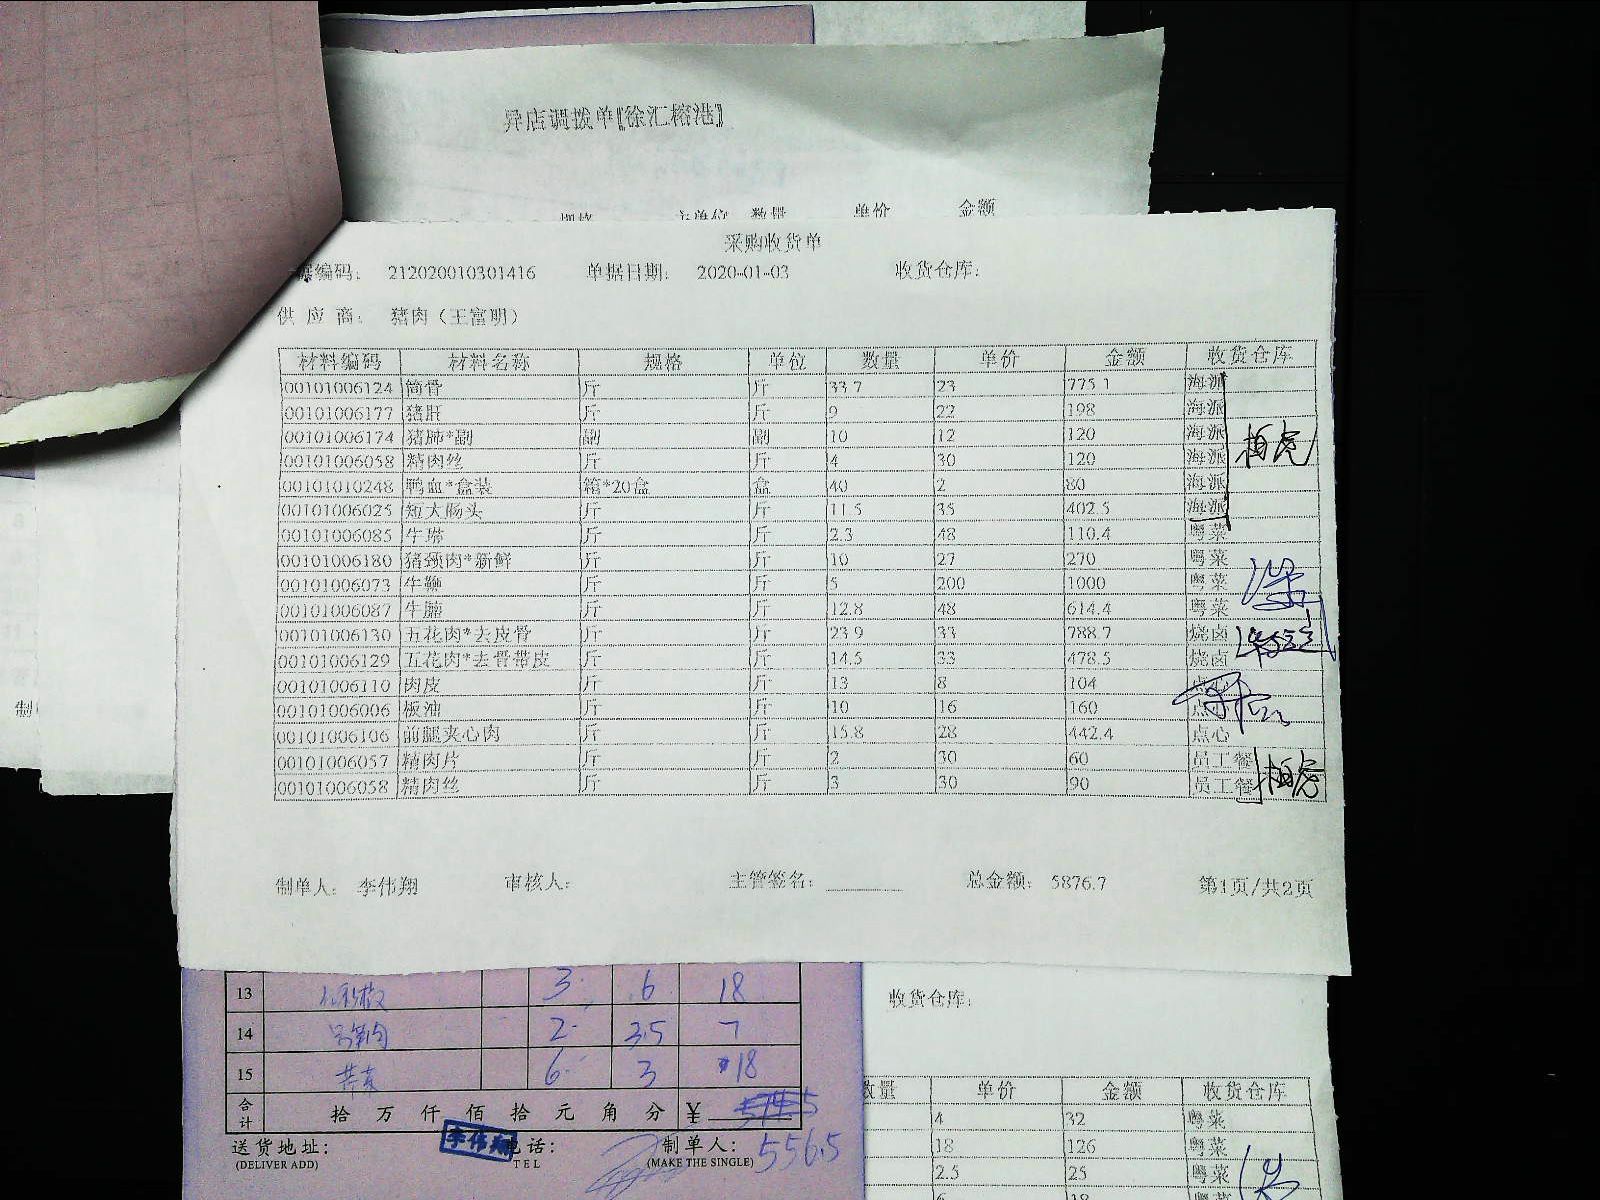 异店调拨单〖徐汇榕港〗
规格 主单位 数量 单价 金额
采购收货单
据编码: 212020010301416 单据日期: 2020-01-03 收货仓库:
供 应 商: 猪肉（王富明）
材料编码 材料名称 规格 单位 数量 单价 金额 收货仓库
00101006124 筒骨 斤 斤 33.7 23 775.1 海派
00101006177 猪肝 斤 斤 9 22 198 海派
00101006174 猪肺*副 副 副 10 12 120 海派
00101006058 精肉丝 斤 斤 4 30 120 海派
00101010248 鸭血*盒装 箱*20盒 盒 40 2 80 海派
00101006025 短大肠头 斤 斤 11.5 35 402.5 海派
00101006085 牛 斤 斤 2.3 48 110.4 粤菜
00101006180 猪颈肉*新鲜 斤 斤 10 27 270 粤菜
00101006073 牛鞭 斤 斤 5 200 1000 粤菜
00101006087 牛腩 斤 斤 12.8 48 614.4 粤菜
00101006130 五花肉*去皮骨 斤 斤 23.9 33 788.7 烧卤
00101006129 五花肉*去骨带皮 斤 斤 14.5 33 478.5 烧卤
00101006110 肉皮 斤 斤 13 8 104 点心
00101006006 板油 斤 斤 10 16 160 点
00101006106 前腿夹心肉 斤 斤 15.8 28 442.4 点心
00101006057 精肉片 斤 斤 2 30 60 员工餐
00101006058 精肉丝 斤 斤 3 30 90 员工餐
制单人: 李伟翔 审核人: 主管签名: 总金额: 5876.7 第1页/共2页
制
13 3 6 18
14 2 3.5 7
15 6 3 18
合计 拾 万 仟 佰 拾 元 角 分 ¥
556.5
送货地址: 李伟翔 电话: 制单人:
(DELIVER ADD) TEL (MAKE THE SINGLE)
收货仓库:
数量 单价 金额 收货仓库
4 32 粤菜
18 126 粤菜
2.5 25 粤菜
6 18 粤菜